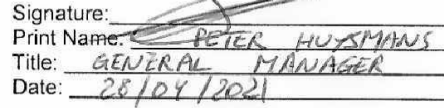 Signature:
Print Name: PETER HUYSMANS
Title: GENERAL MANAGER
Date: 28/04/2021